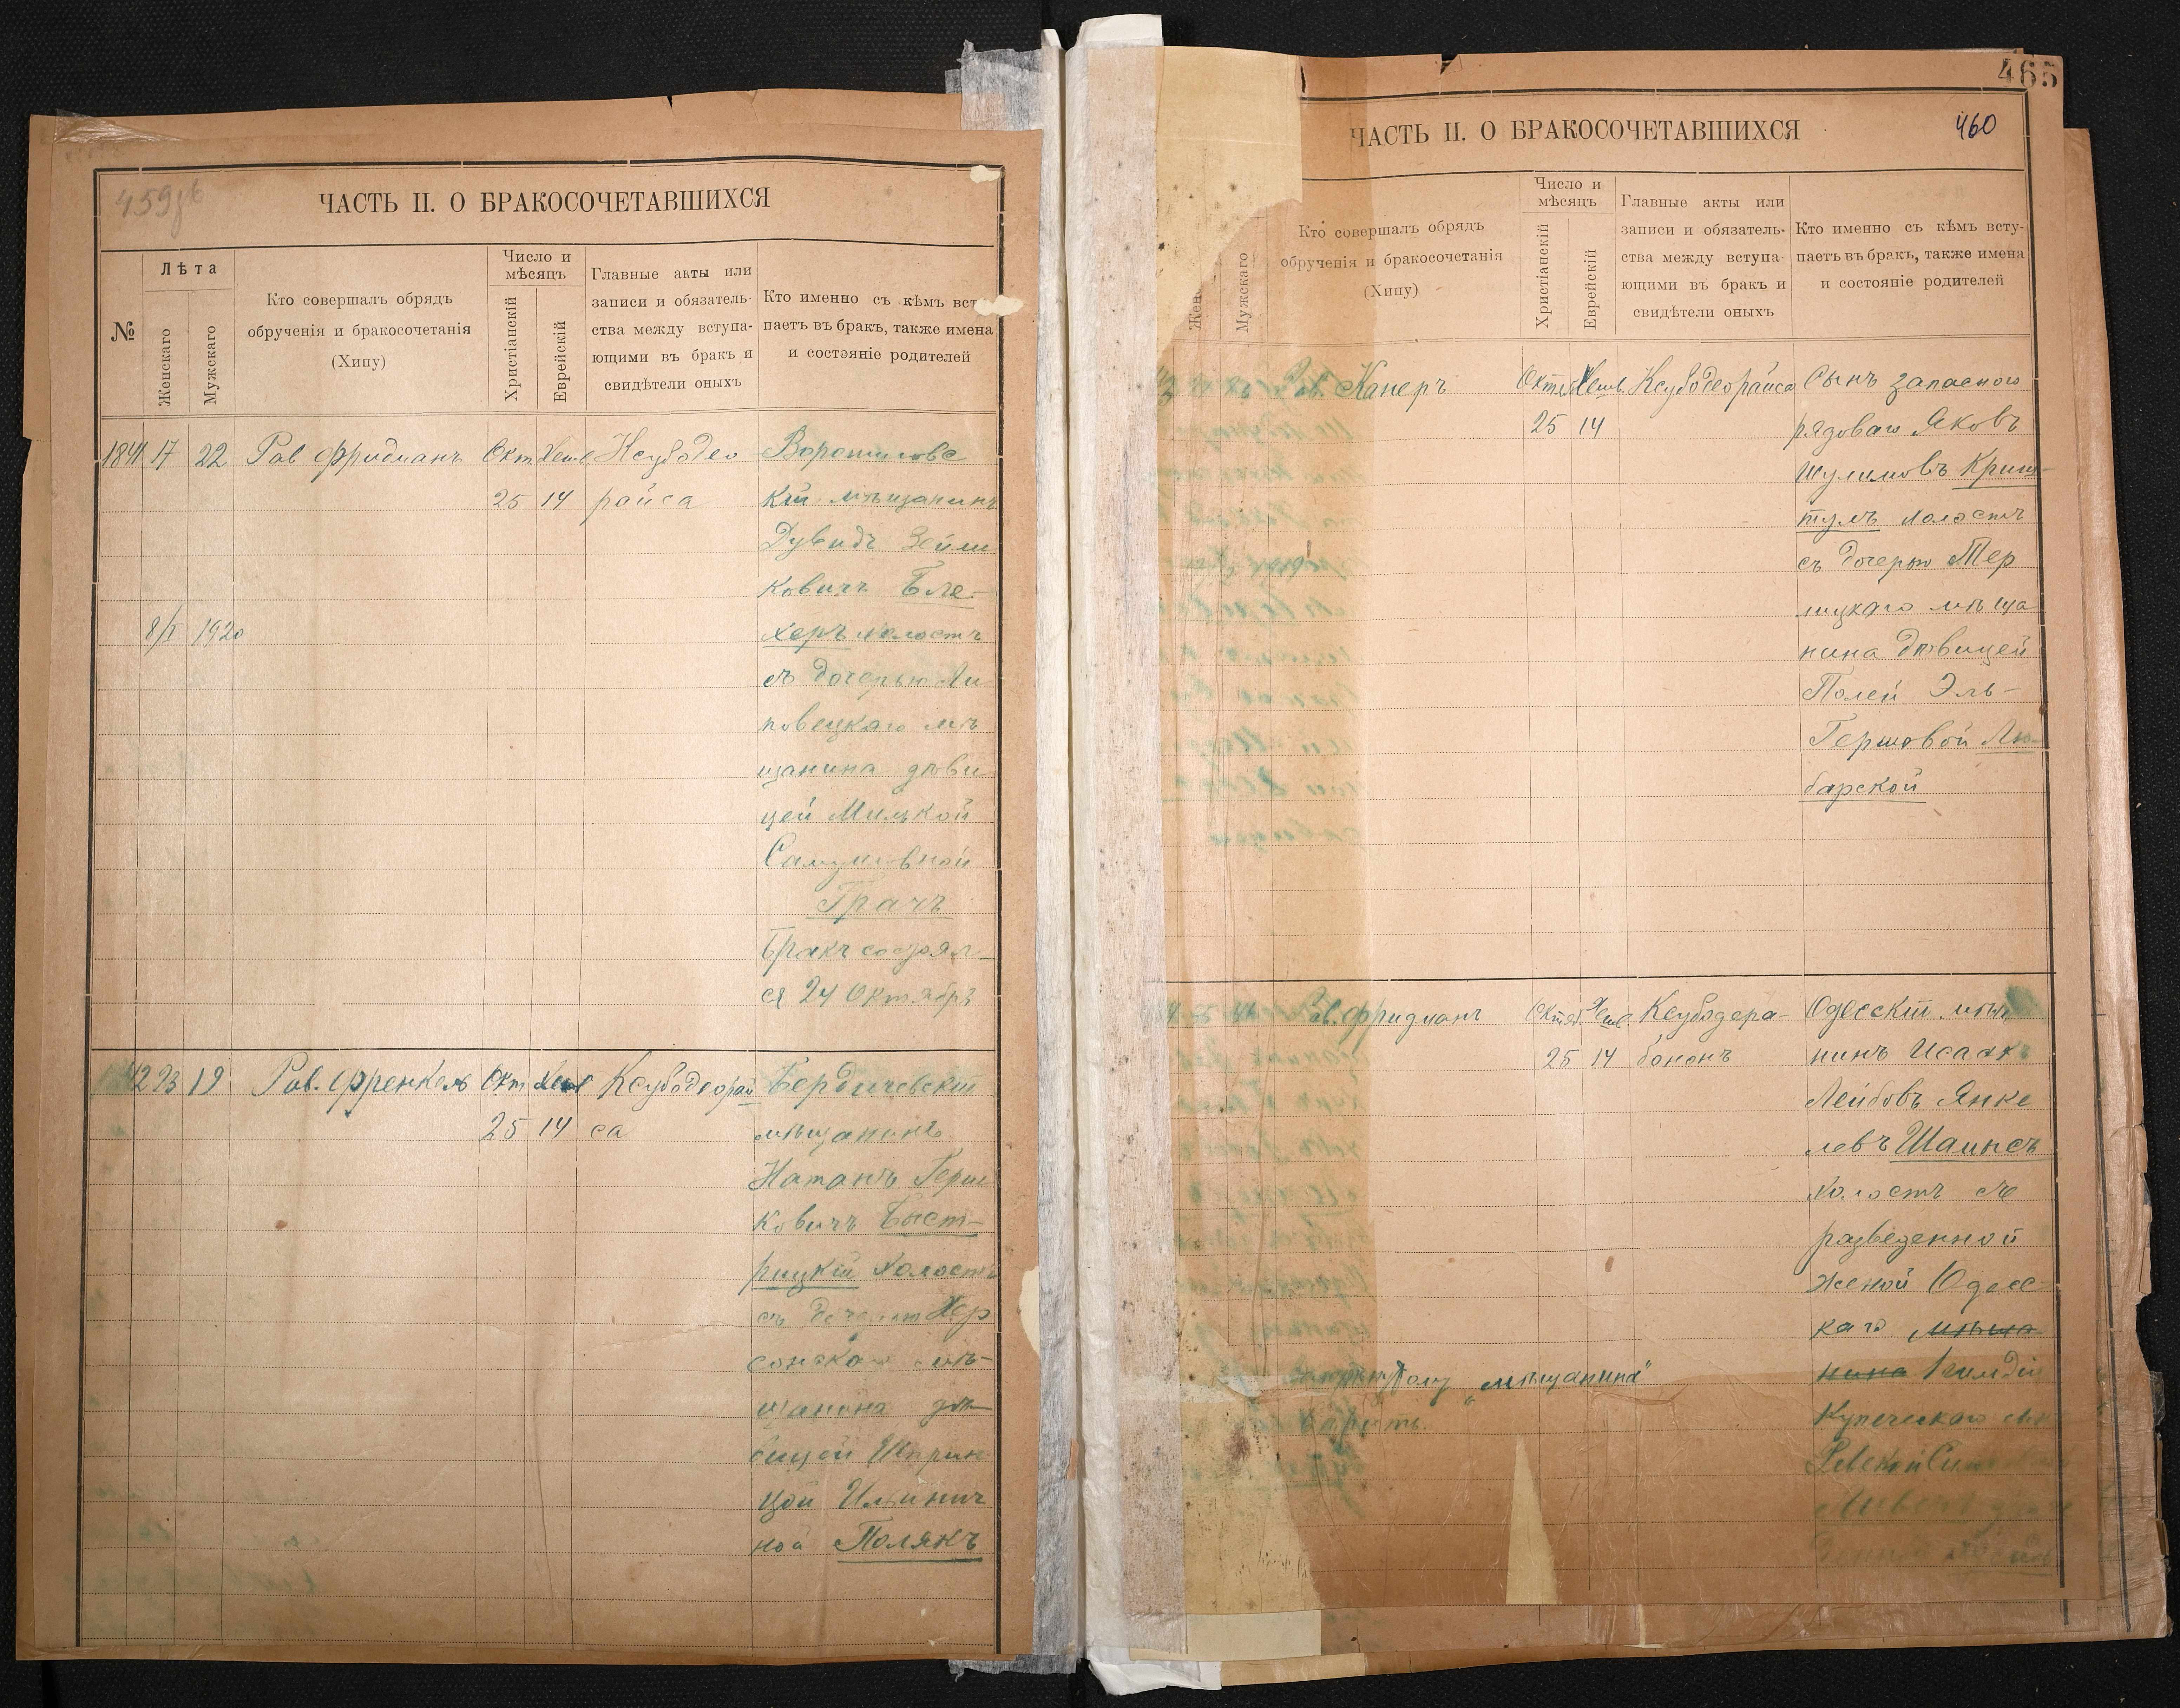 459
ЧАСТЬ II. О БРАКОСОЧЕТАВШИХСЯ
№
Лѣта
Женскаго
Мужскаго
Кто совершалъ обрядъ
обрученія и бракосочетанія
(Хипу)
Число и
мѣсяцъ
Христіанскій
Еврейскій
Главные акты или
записи и обязатель-
ства между вступа-
ющими въ бракъ и
свидѣтели оныхъ
Кто именно съ кѣмъ вст
паетъ въ бракъ, также имена
и состояніе родителей
1841 17 22 Рав Фридманъ Окт Хешв Ксубодео
25 14 райса
кій мѣщанинъ
Дувидъ Зейли
ковичъ Бле-
херъ холостъ
8/I 1920
съ дочерью Ли
повецкаго мѣ
щанина дѣви
цей Милькой
Самуиловной
Грачъ
Бракъ состоял-
ся 24 Октября
42 23 19 Рав. Френкель Окт Хешв Ксубодеорай Бердичевскій
25 14 са мѣщанинъ
Натанъ Герш
ковичъ Быст-
рицкій холостъ
съ дочерью Хер
сонскаго мѣ-
щанина дѣ-
вицей Шприн
цой Ильинич
ной Полякъ
465
460
ЧАСТЬ II. О БРАКОСОЧЕТАВШИХСЯ
Жен
Мужскаго
Кто совершалъ обрядъ
обрученія и бракосочетанія
(Хипу)
Число и
мѣсяцъ
Христіанскій
Еврейскій
Главные акты или
записи и обязатель-
ства между вступа-
ющими въ бракъ и
свидѣтели оныхъ
Кто именно съ кѣмъ всту-
паетъ въ бракъ, также имена
и состояніе родителей
Рав. Канеръ Октяб Хешв. Ксубодеорайса Сынъ запаснаго
25 14 рядоваго Яковъ
Шулимовъ Криш-
тулъ холостъ
съ дочерью Тер
лицкаго мѣща
нина дѣвицей
Полей Эль-
Гершовой Лю-
барской
Рав. Фридманъ Октяб Хешв. Ксубодера- Одесскій мѣщ
25 14 бононъ нинъ Исаакъ
Лейбовъ Янке
левъ Шаинсъ
холостъ съ
разведенной
женой Одесс-
каго мѣща
нина 1 гильдіи
"мѣщанина"
Купеческаго